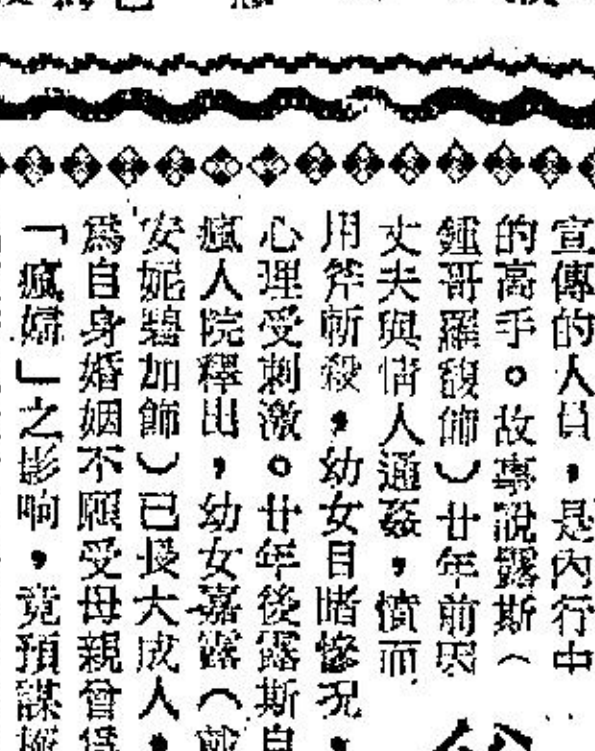 宣傳的人員，是內行中
的高手。故事說露斯（
鍾哥羅馥飾）廿年前因
丈夫與情人通姦，憤而
用斧斬殺，幼女目睹慘況，
心理受刺激。廿年後露斯自
瘋人院釋出，幼女嘉露（戴
安妮·加飾）已長大成人，
為自身婚姻不願受母親曾為
「瘋婦」之影响，竟預謀